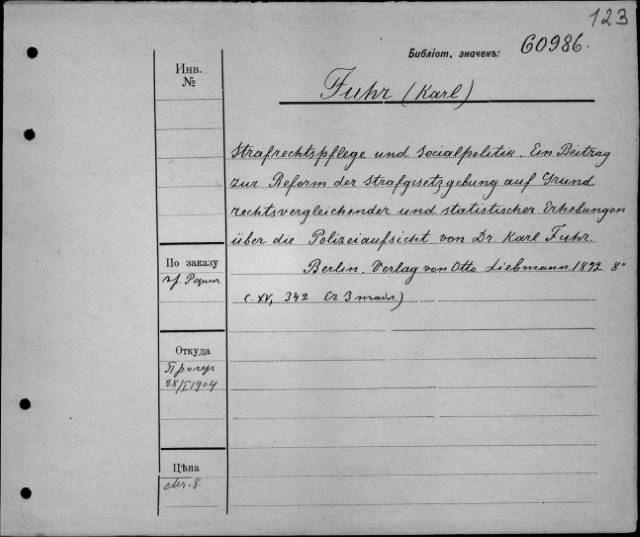 123
Библіот. значекъ: 60986.
Инв. №
Fuhr (Karl)
Strafrechtspflege und Socialpolitik. Ein Beitrag
zur Reform der Strafgesetzgebung auf Grund
rechtsvergleichender und statistischer Erhebungen
über die Polizeiaufsicht von Dr. Karl Fuhr.
Berlin. Verlag von Otto Liebmann. 1892 8°
с. XV, 342
По заказу
Откуда
28/I 1904
Цѣна
Mr. 8.